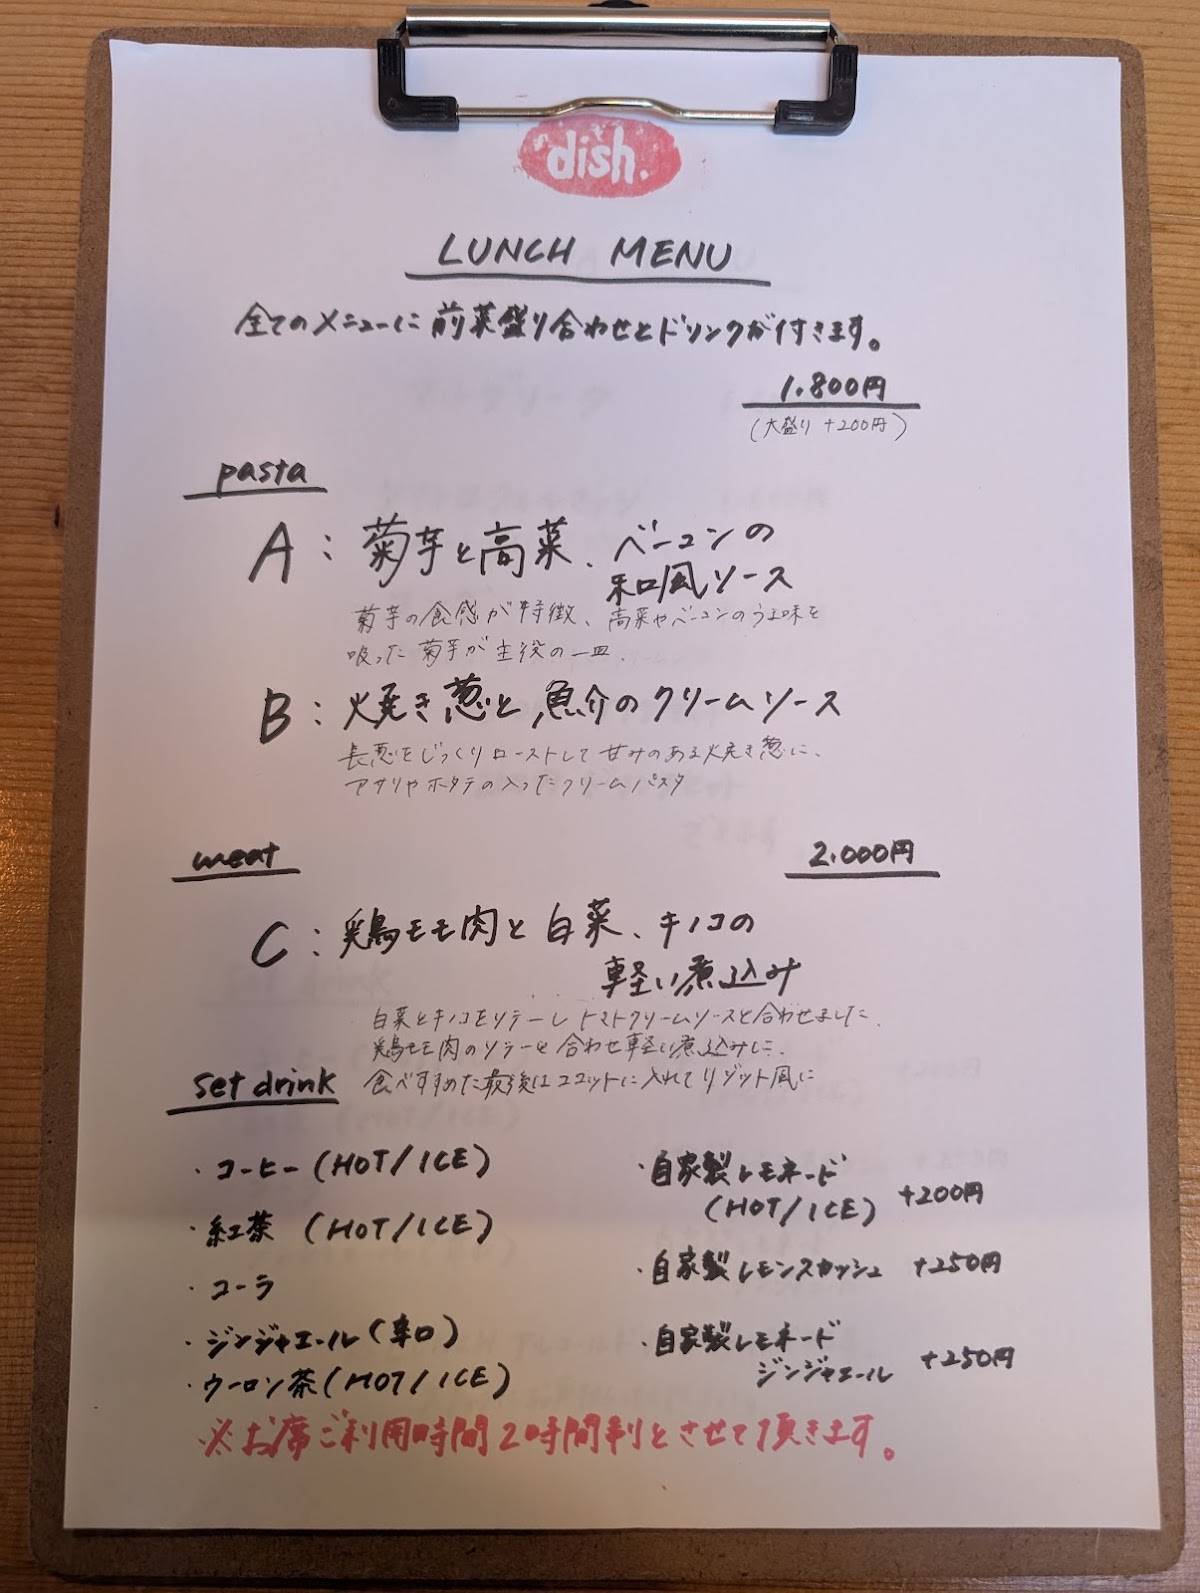 dish.
LUNCH MENU
全てのメニューに前菜盛り合わせとドリンクが付きます。
1.800円
(大盛り +200円)
pasta
A：菊芋と高菜、ベーコンの
和風ソース
菊芋の食感が特徴、高菜やベーコンのうま味を
吸った菊芋が主役の一皿.
B：焼き葱と魚介のクリームソース
長葱をじっくりローストして甘みのある焼き葱に、
アサリやホタテの入ったクリームパスタ
meat
2.000円
C：鶏モモ肉と白菜、キノコの
軽い煮込み
白菜とキノコをソテーしトマトクリームソースと合わせました.
鶏モモ肉のソテーと合わせ軽い煮込みに.
食べすすめた最後はココットに入れてリゾット風に
set drink
・コーヒー(HOT/ICE)
・紅茶 (HOT/ICE)
・コーラ
・ジンジャエール(辛口)
・ウーロン茶(HOT/ICE)
・自家製レモネード
(HOT/ICE) +200円
・自家製レモンスカッシュ +250円
・自家製レモネード
ジンジャエール +250円
※お席ご利用時間2時間制とさせて頂きます。